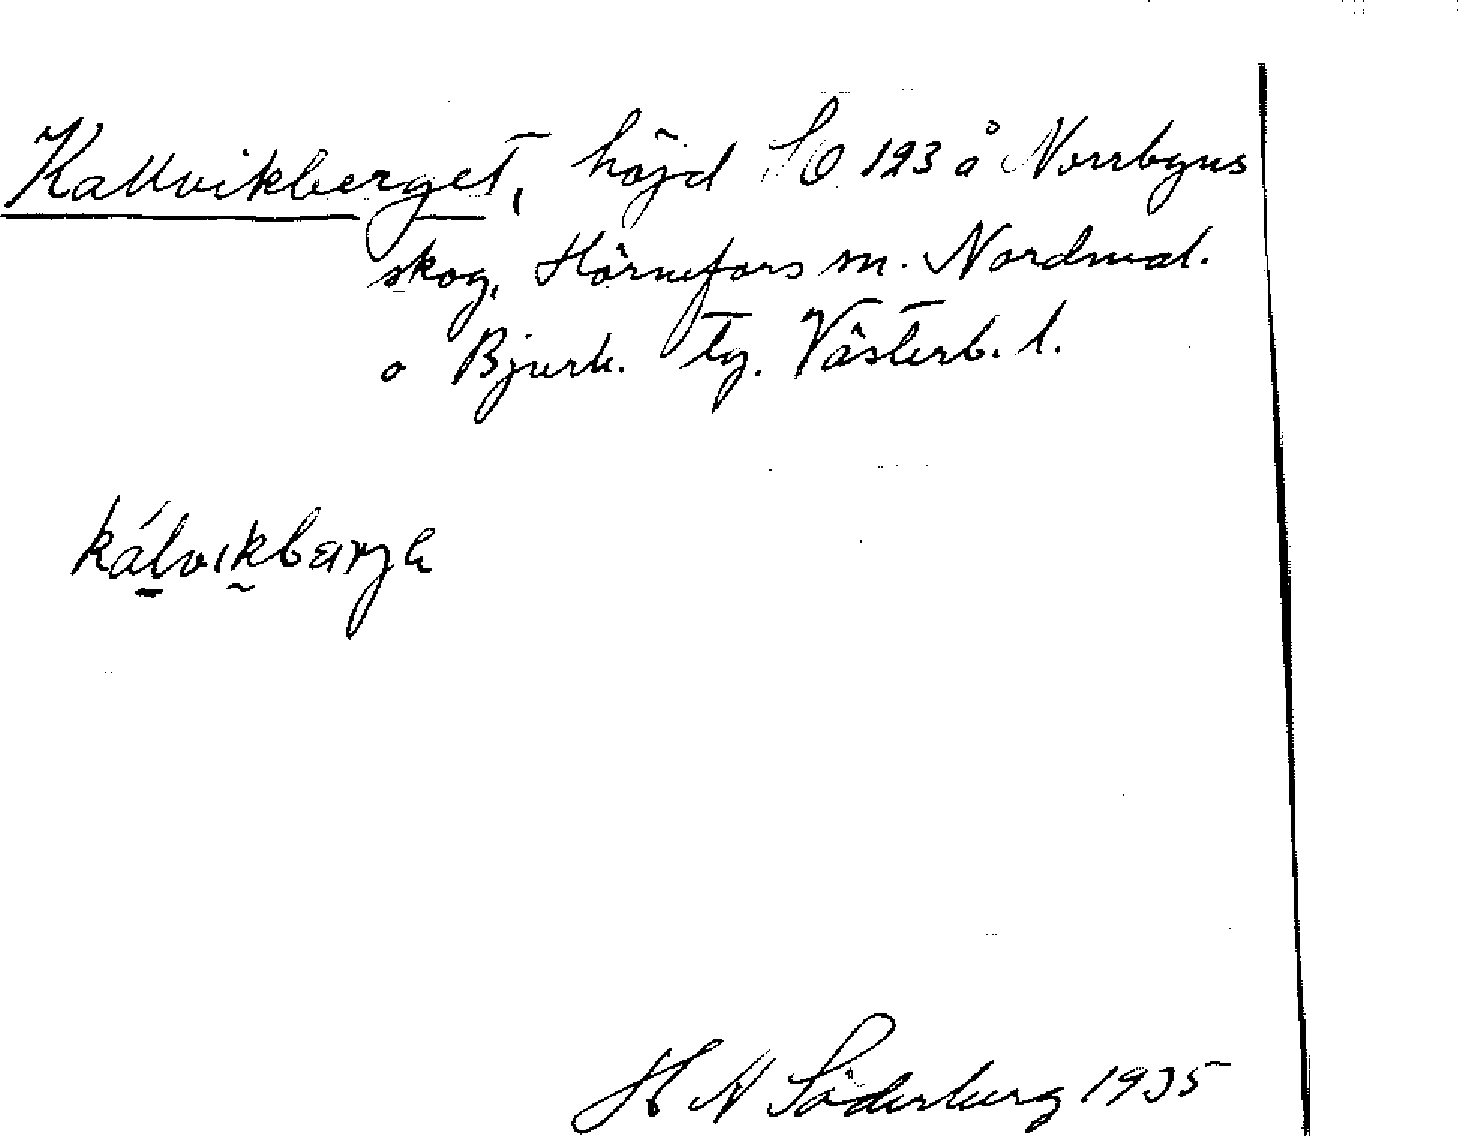 Kallvikberget, höjd SO 123 å Norrbyns
skog, Hörnefors sn. Nordmal.
o Bjurh. tg. Västerb. l.
kálvikbærje
H N Söderberg 1935